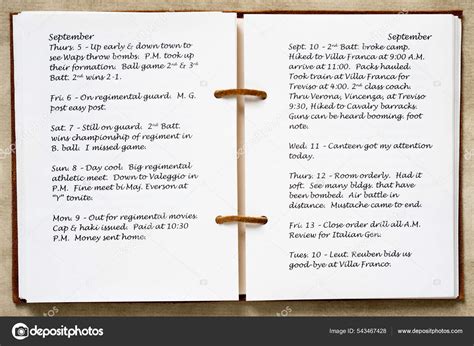 September
Thurs. 5 - Up early & down town to
see Waps throw bombs. P.M. took up
their formation. Ball game 2nd & 3rd
Batt. 2nd wins 2-1.
Fri. 6 - On regimental guard. M. G.
post easy post.
Sat. 7 - Still on guard. 2nd Batt.
wins championship of regiment in
B. ball. I missed game.
Sun. 8 - Day cool. Big regimental
athletic meet. Down to Valeggio in
P.M. Fine meet bi Maj. Everson at
"Y" tonite.
Mon. 9 - Out for regimental movies.
Cap & haki issued. Paid at 10:30
P.M. Money sent home.
September
Sept. 10 - 2nd Batt. broke camp.
Hiked to Villa Franca at 9:00 A.M.
arrive at 11:00. Packs hauled.
Took train at Villa Franca for
Treviso at 4:00. 2nd class coach.
Thru Verona, Vincenza, at Treviso
9:30, Hiked to Cavalry barracks.
Guns can be heard booming, foot
note.
Wed. 11 - Canteen got my attention
today.
Thurs. 12 - Room orderly. Had it
soft. See many bldgs. that have
been bombed. Air battle in
distance. Mustache came to end.
Fri. 13 - Close order drill all A.M.
Review for Italian Gen.
Tues. 10 - Leut. Reuben bids us
good-bye at Villa Franco.
depositphotos
Image ID: 543467428
www.depositphotos.com